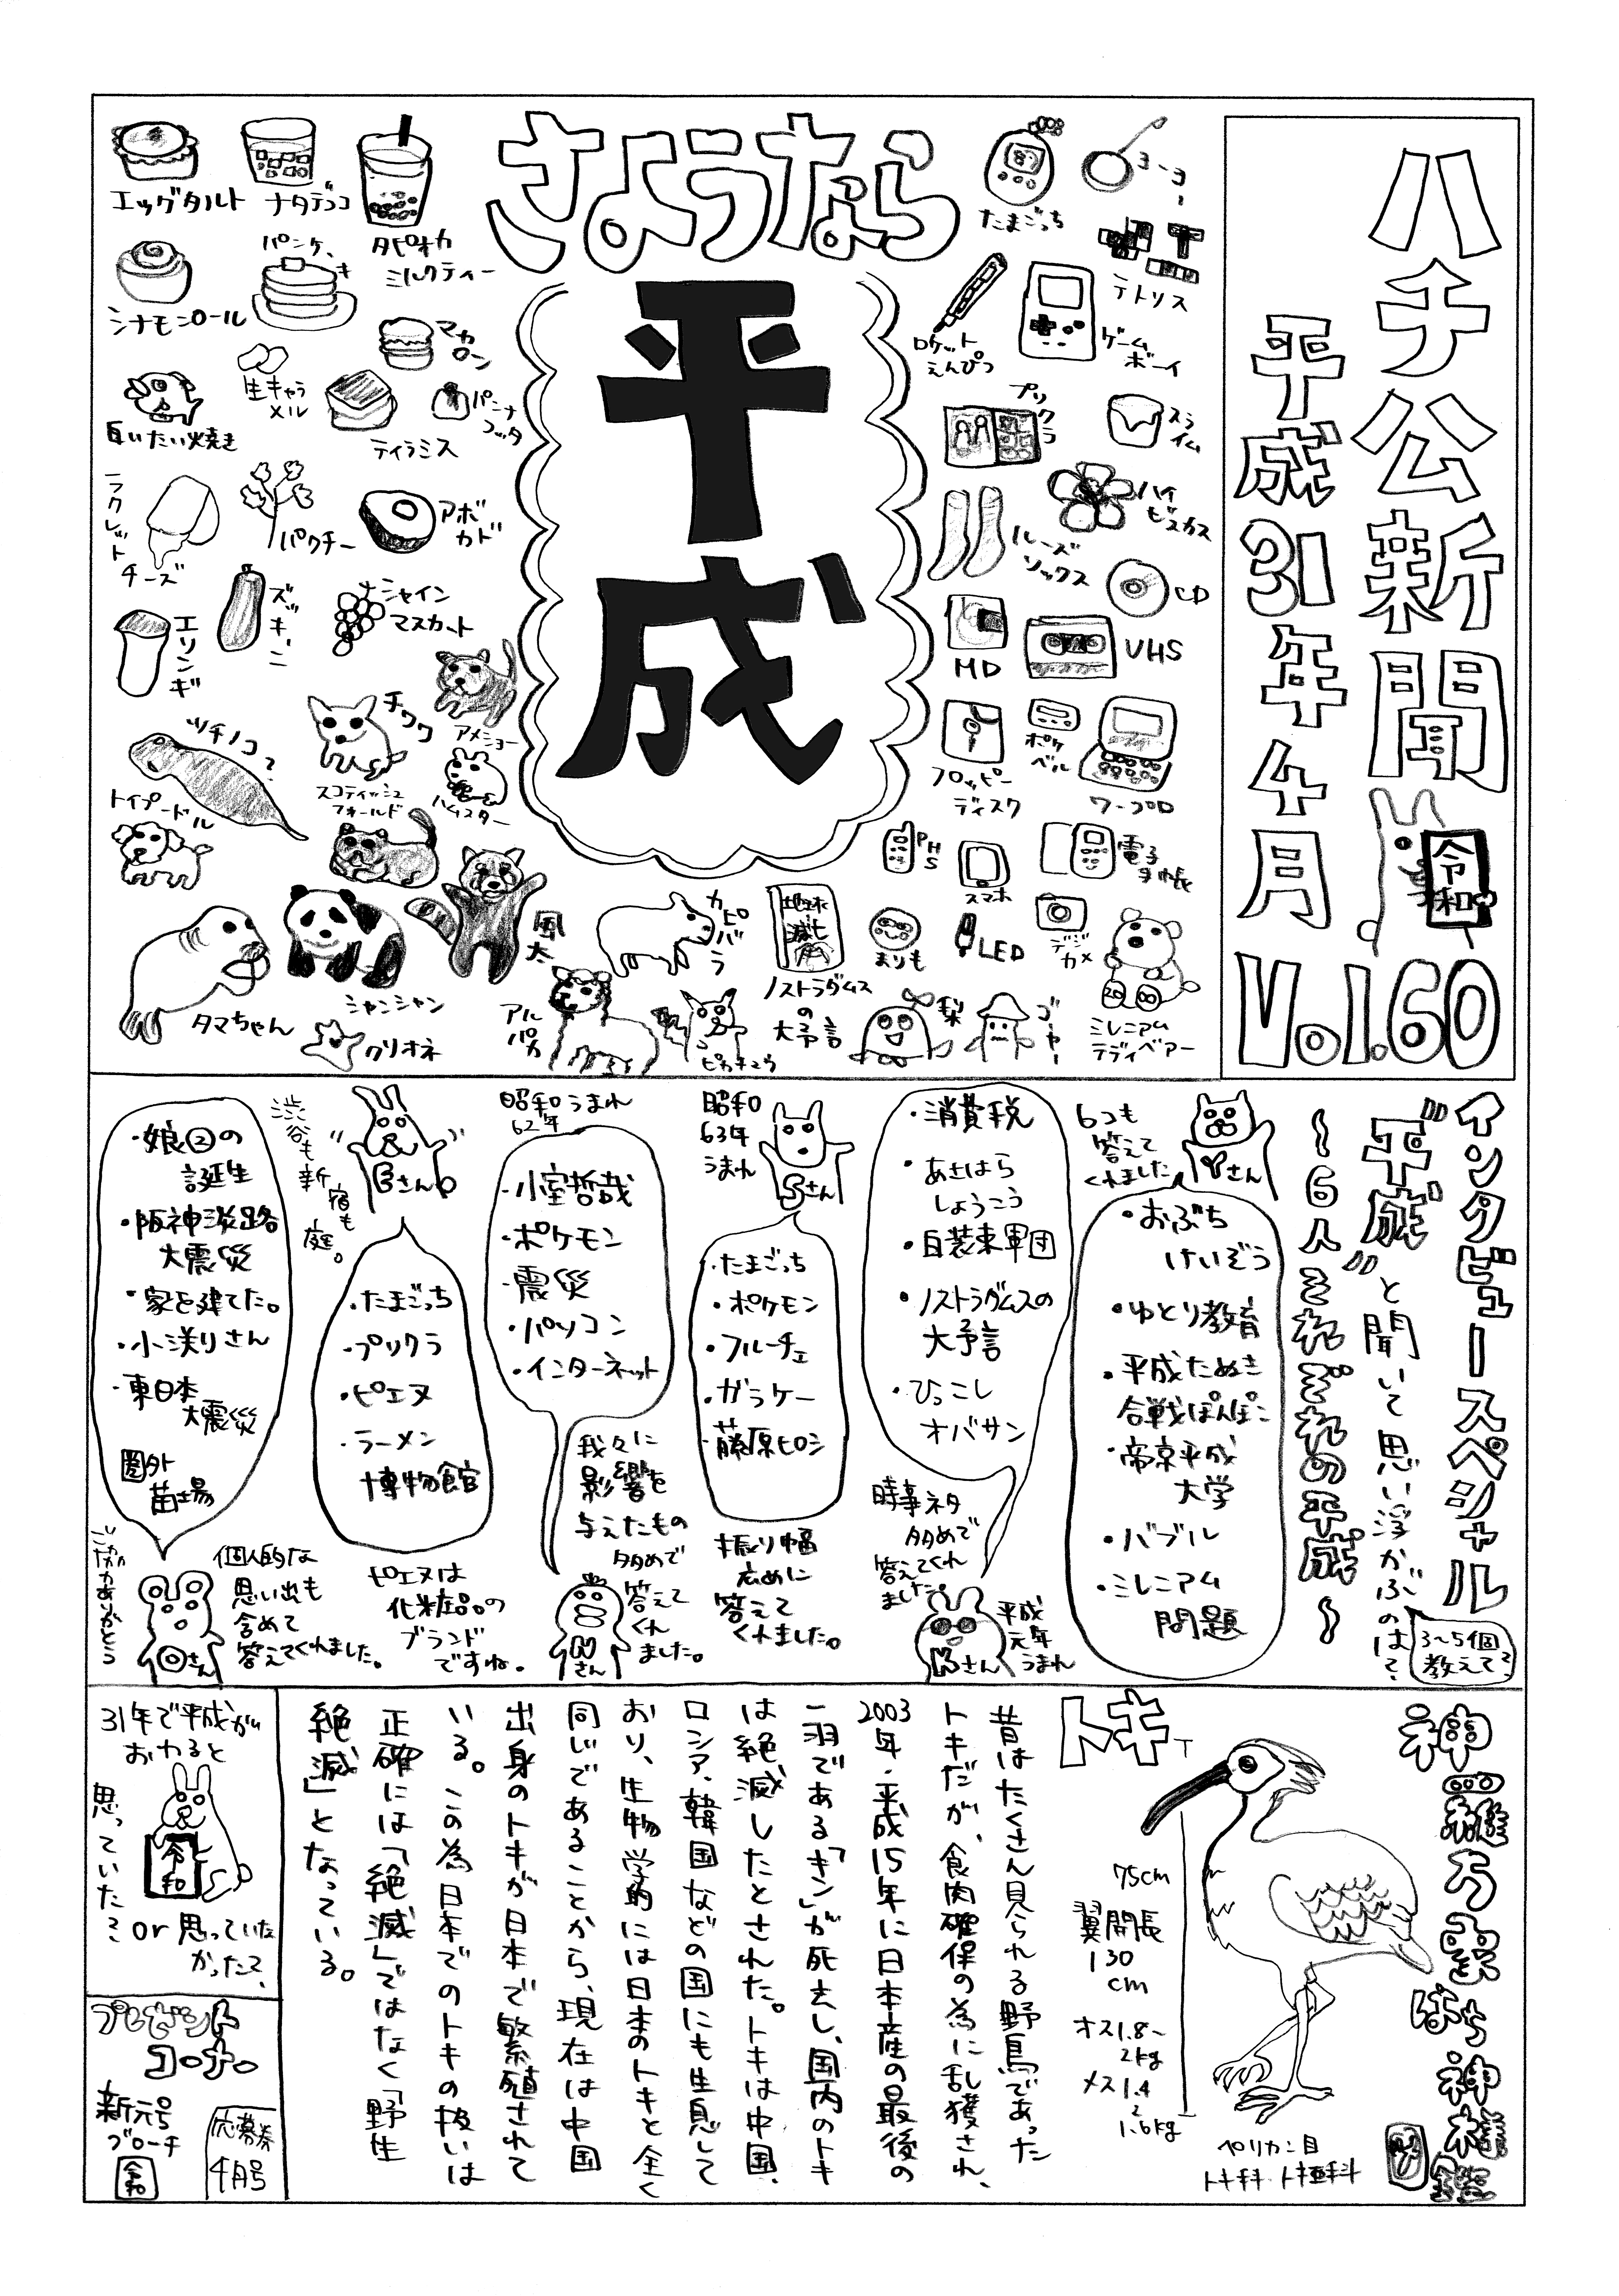 ハチ公新聞
平成31年4月
Vol.60
令和
さようなら
平成
たまごっち
ヨーヨー
テトリス
ロケット
えんぴつ
ゲーム
ボーイ
プリクラ
スライム
ルーズ
ソックス
ハイ
ビスカス
CD
MD
VHS
フロッピー
ディスク
ポケ
ベル
ワープロ
PHS
スマホ
電子
手帳
まりも
LED
デジ
カメ
ミレニアム
テディベアー
20 00
地球
滅亡
ノストラダムス
の
大予言
梨
ゴーヤー
エッグタルト
ナタデココ
タピオカ
ミルクティー
シナモンロール
パンケーキ
マカロン
白いたい焼き
生キャラ
メル
ティラミス
パンナ
コッタ
ラクレット
チーズ
パクチー
アボ
カド
エリンギ
ズッキーニ
シャイン
マスカット
ツチノコ?
チワワ
アメショー
トイプードル
スコティッシュ
フォールド
ハムスター
タマちゃん
シャンシャン
風太
クリオネ
カピバラ
アルパカ
ピカチュウ
インタビュースペシャル
"平成"と聞いて思い浮かぶのは?
3~5個
教えて?
~6人それぞれの平成~
6つも
答えて
くれました
Yさん
・おぶち
けいぞう
・ゆとり教育
・平成たぬき
合戦ぽんぽこ
・帝京平成
大学
・バブル
・ミレニアム
問題
・消費税
・あさはら
しょうこう
・白装束軍団
・ノストラダムスの
大予言
・ひっこし
オバサン
時事ネタ
多めで
答えてくれ
ました。
Kさん
平成
元年
うまれ
昭和
63年
うまれ
Sさん
・たまごっち
・ポケモン
・フルーチェ
・ガラケー
・藤原ヒロシ
振り幅
広めに
答えて
くれました。
昭和うまれ
62年
・小室哲哉
・ポケモン
・震災
・パソコン
・インターネット
我々に
影響を
与えたもの
多めで
答えて
くれ
ました。
Nさん
渋谷も
新宿も
庭。
Eさん
・たまごっち
・プリクラ
・ピエヌ
・ラーメン
博物館
ピエヌは
化粧品の
ブランド
ですね。
・娘②の
誕生
・阪神淡路
大震災
・家を建てた。
・小渕りさん
・東日本
大震災
圏外
苗場
Oさん
個人的な
思い出も
含めて
答えてくれました。
トキ
75cm
翼開長
130
cm
オス1.8~
2kg
メス1.4
~
1.6kg
ペリカン目
トキ科 トキ亜科
昔はたくさん見られる野鳥であった
トキだが、食肉確保の為に乱獲され、
2003年・平成15年に日本産の最後の
一羽である「キン」が死去し、国内のトキ
は絶滅したとされた。トキは中国、
ロシア、韓国などの国にも生息して
おり、生物学的には日本のトキと全く
同じであることから、現在は中国
出身のトキが日本で繁殖されて
いる。この為日本でのトキの扱いは
正確には「絶滅」ではなく「野生
絶滅」となっている。
31年で平成が
おわると
思っていた?
or思っていな
かった?
令和
プレゼント
コーナー
新元号
ブローチ
令和
応募券
4月号